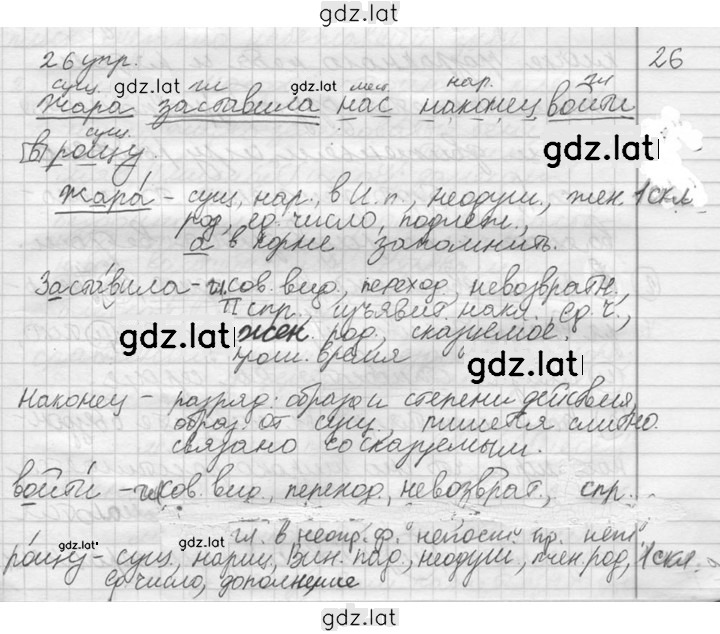 gdz.lat
26 упр. 26
сущ. gdz.lat гл gdz.lat мест. нар. гл
Жара заставила нас наконец войти
gdz.lat
сущ.
[в] рощу.
Жара́ - сущ, нар., в И.п., неодуш., жен. 1 скл.
род, ед. число, подлеж.,
а в корне запомнить.
Заста́вила - сов. вид, переход, невозвратн.
II спр., изъявит накл. ед. ч.,
gdz.lat жен. род., сказуемое.
прош. время gdz.lat
Наконец - разряд: образа и степени действия,
образ. от сущ., пишется слитно.
связано со сказуемым.
войти́ - сов. вид, переход, невозврат., спр.
гл. в неопр. ф.
gdz.lat
ро́щу - сущ., нариц, Вин. пад., неодуш, жен. род, 1 скл.
ед. число, дополнение
gdz.lat